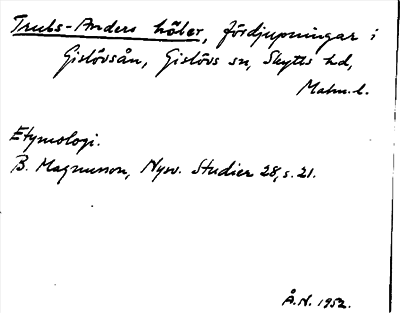 Trubs-Anders hålor, fördjupningar i
Gislövsån, Gislövs sn, Skytts hd,
Malm. l.
Etymologi.
B. Magnusson, Nysv. Studier 28, s. 21.
Å.N. 1952.